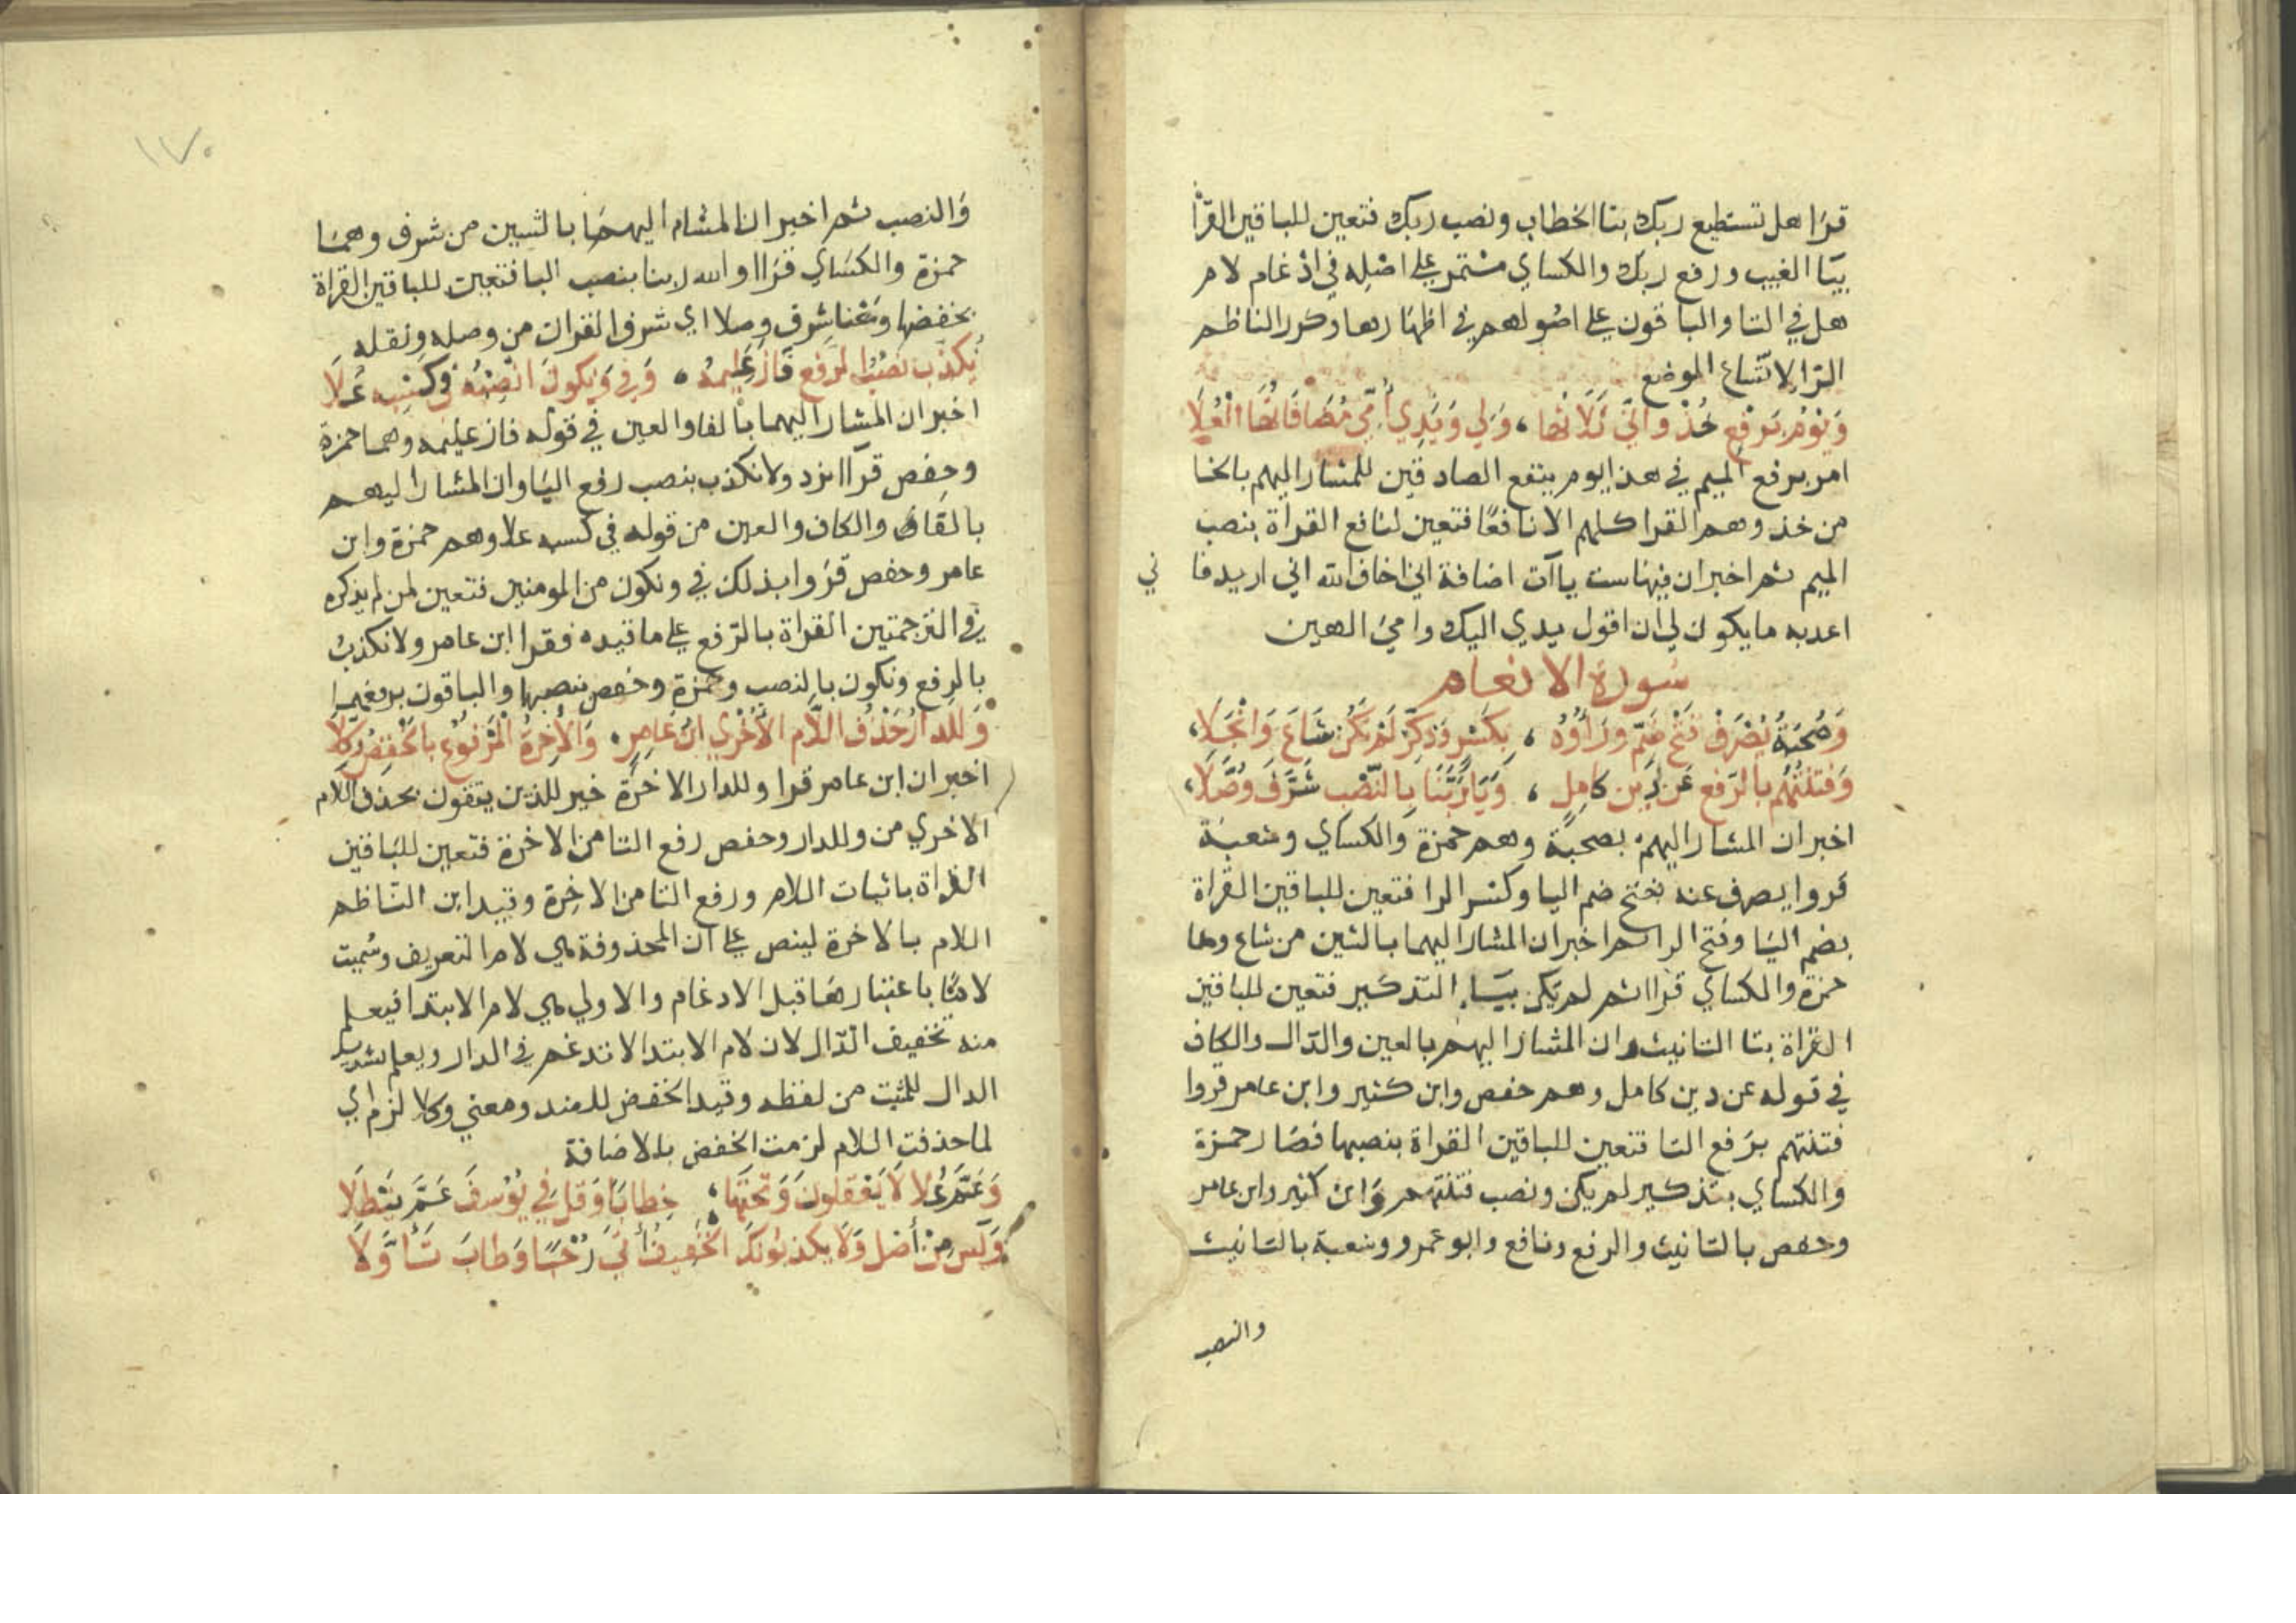 قرا هل تستطيع ربك بتا الخطاب ونصب ربك فتعين للباقين القراة
بيا الغيب ورفع ربك والكساي مستمر علي اصله في ادغام لام
هل في التا والباقون علي اصولهم في اظهارها وكرر الناظم
الترا لاتساع الموضع
وَيَوْمَ بِرَفْعٍ خُذْ وَاِنِّي ثَلَاثُهَا ، وَلِي وَيَدِي أُمِّي مُضَافَاتُهَا الْعُلَا
امر برفع الميم في هذا يوم ينفع الصادقين للمشار اليهم بالخا
من خذ وهم القرا كلهم الا نافعًا فتعين لنافع القراة بنصب
الميم ثم اخبر ان فيها ست ياآت اضافة اني اخاف الله اني اريد فا ني
اعذبه ما يكون لي ان اقول يدي اليك وامي الهين
سورة الانعام
وَصُحْبَةُ يُصْرَفْ فَتْحُ ضَمٍّ وَرَاؤُهُ ، بِكَسْرٍ وَذَكِّرْ لَمْ يَكُنْ شَاعَ وَانْجَلَا ،
وَفِتْنَتُهُمْ بِالرَّفْعِ عَنْ دِينِ كَامِلٍ ، وَيَا رَبَّنَا بِالنَّصْبِ شَرَّفَ وُصَّلَا ،
اخبر ان المشار اليهم بصحبة وهم حمزة والكساي وشعبة
قروا يصرف عنه بفتح ضم اليا وكسر الرا فتعين للباقين القراة
بضم اليا وفتح الرا ثم اخبر ان المشار اليهما بالشين من شاع وهما
حمزة والكساي قرا ثم لم يكن بياء التذكير فتعين للباقين
القراة بتا التانيث وان المشار اليهم بالعين والدال والكاف
في قوله عن دين كامل وهم حفص وابن كثير وابن عامر قروا
فتنتهم برفع التا فتعين للباقين القراة بنصبها فصار حمزة
والكساي بتذكير لم يكن ونصب فتنتهم وابن كثير وابن عامر
وحفص بالتانيث والرفع ونافع وابو عمرو وشعبة بالتانيث
والنصب
١٧٠
والنصب ثم اخبر ان المشار اليهما بالشين من شرف وهما
حمزة والكساي قراا والله ربنا بنصب البا فتعين للباقين القراة
بخفضها ومعنا شرف وصلا اي شرف القران من وصله ونقله
نُكَذِّبَ نَصْبُ الرَّفْعِ فَازَ عَلِيمُهُ ، وَفِي وَنَكُونَ انْصِبْهُ فِي كَسْبِهِ عُلَا
اخبر ان المشار اليهما بالفا والعين في قوله فاز عليمه وهما حمزة
وحفص قراا نرد ولا نكذب بنصب رفع اليا وان المشار اليهم
بالفا والكاف والعين من قوله في كسبه علا وهم حمزة وابن
عامر وحفص قروا بذلك في ونكون من المومنين فتعين لمن لم يذكره
في الترجمتين القراة بالرفع علي ما قيده فقرا ابن عامر ولا نكذبُ
بالرفع ونكون بالنصب وحمزة وحفص بنصبهما والباقون برفعهما
وَلَلدَّارُ حَذْفُ اللَّامِ الأُخْرَي ابْنُ عَامِرٍ ، وَالآخِرَةُ الْمَرْفُوعُ بِالْخَفْضِ وُكِّلَا
اخبر ان ابن عامر قرا وللدار الاخرة خير للذين يتقون بحذف اللام
الاخري من وللدار وخفض رفع التا من الاخرة فتعين للباقين
القراة باثبات اللام ورفع التا من الاخرة وقيد ابن الناظم
اللام بالاخرة لينص علي ان المحذوفة هي لام التعريف وسُميت
لامًا باعتبارها قبل الادغام والاولي هي لام الابتدا فيعلم
منه تخفيف الدال لان لام الابتدا لا تدغم في الدار ويعلم تشديد
الدال للمثبت من لفظه وقيد الخفض للضد ومعني وكلا لزم اي
لما حذفت اللام لزمت الخفض بالاضافة
وَعَمَّ عُلًا لَا يَعْقِلُونَ وَتَحْتَهَا ، خِطَابًا وَقُلْ فِي يُوسُفَ عَمَّ نَيْطَلَا
وَيَسٍ مِنْ أَصْلٍ وَلَا يُكْذِبُونَكَ الْخَفِيفُ أَتَي رُحْبًا وَطَابَ تَأَوُّلَا